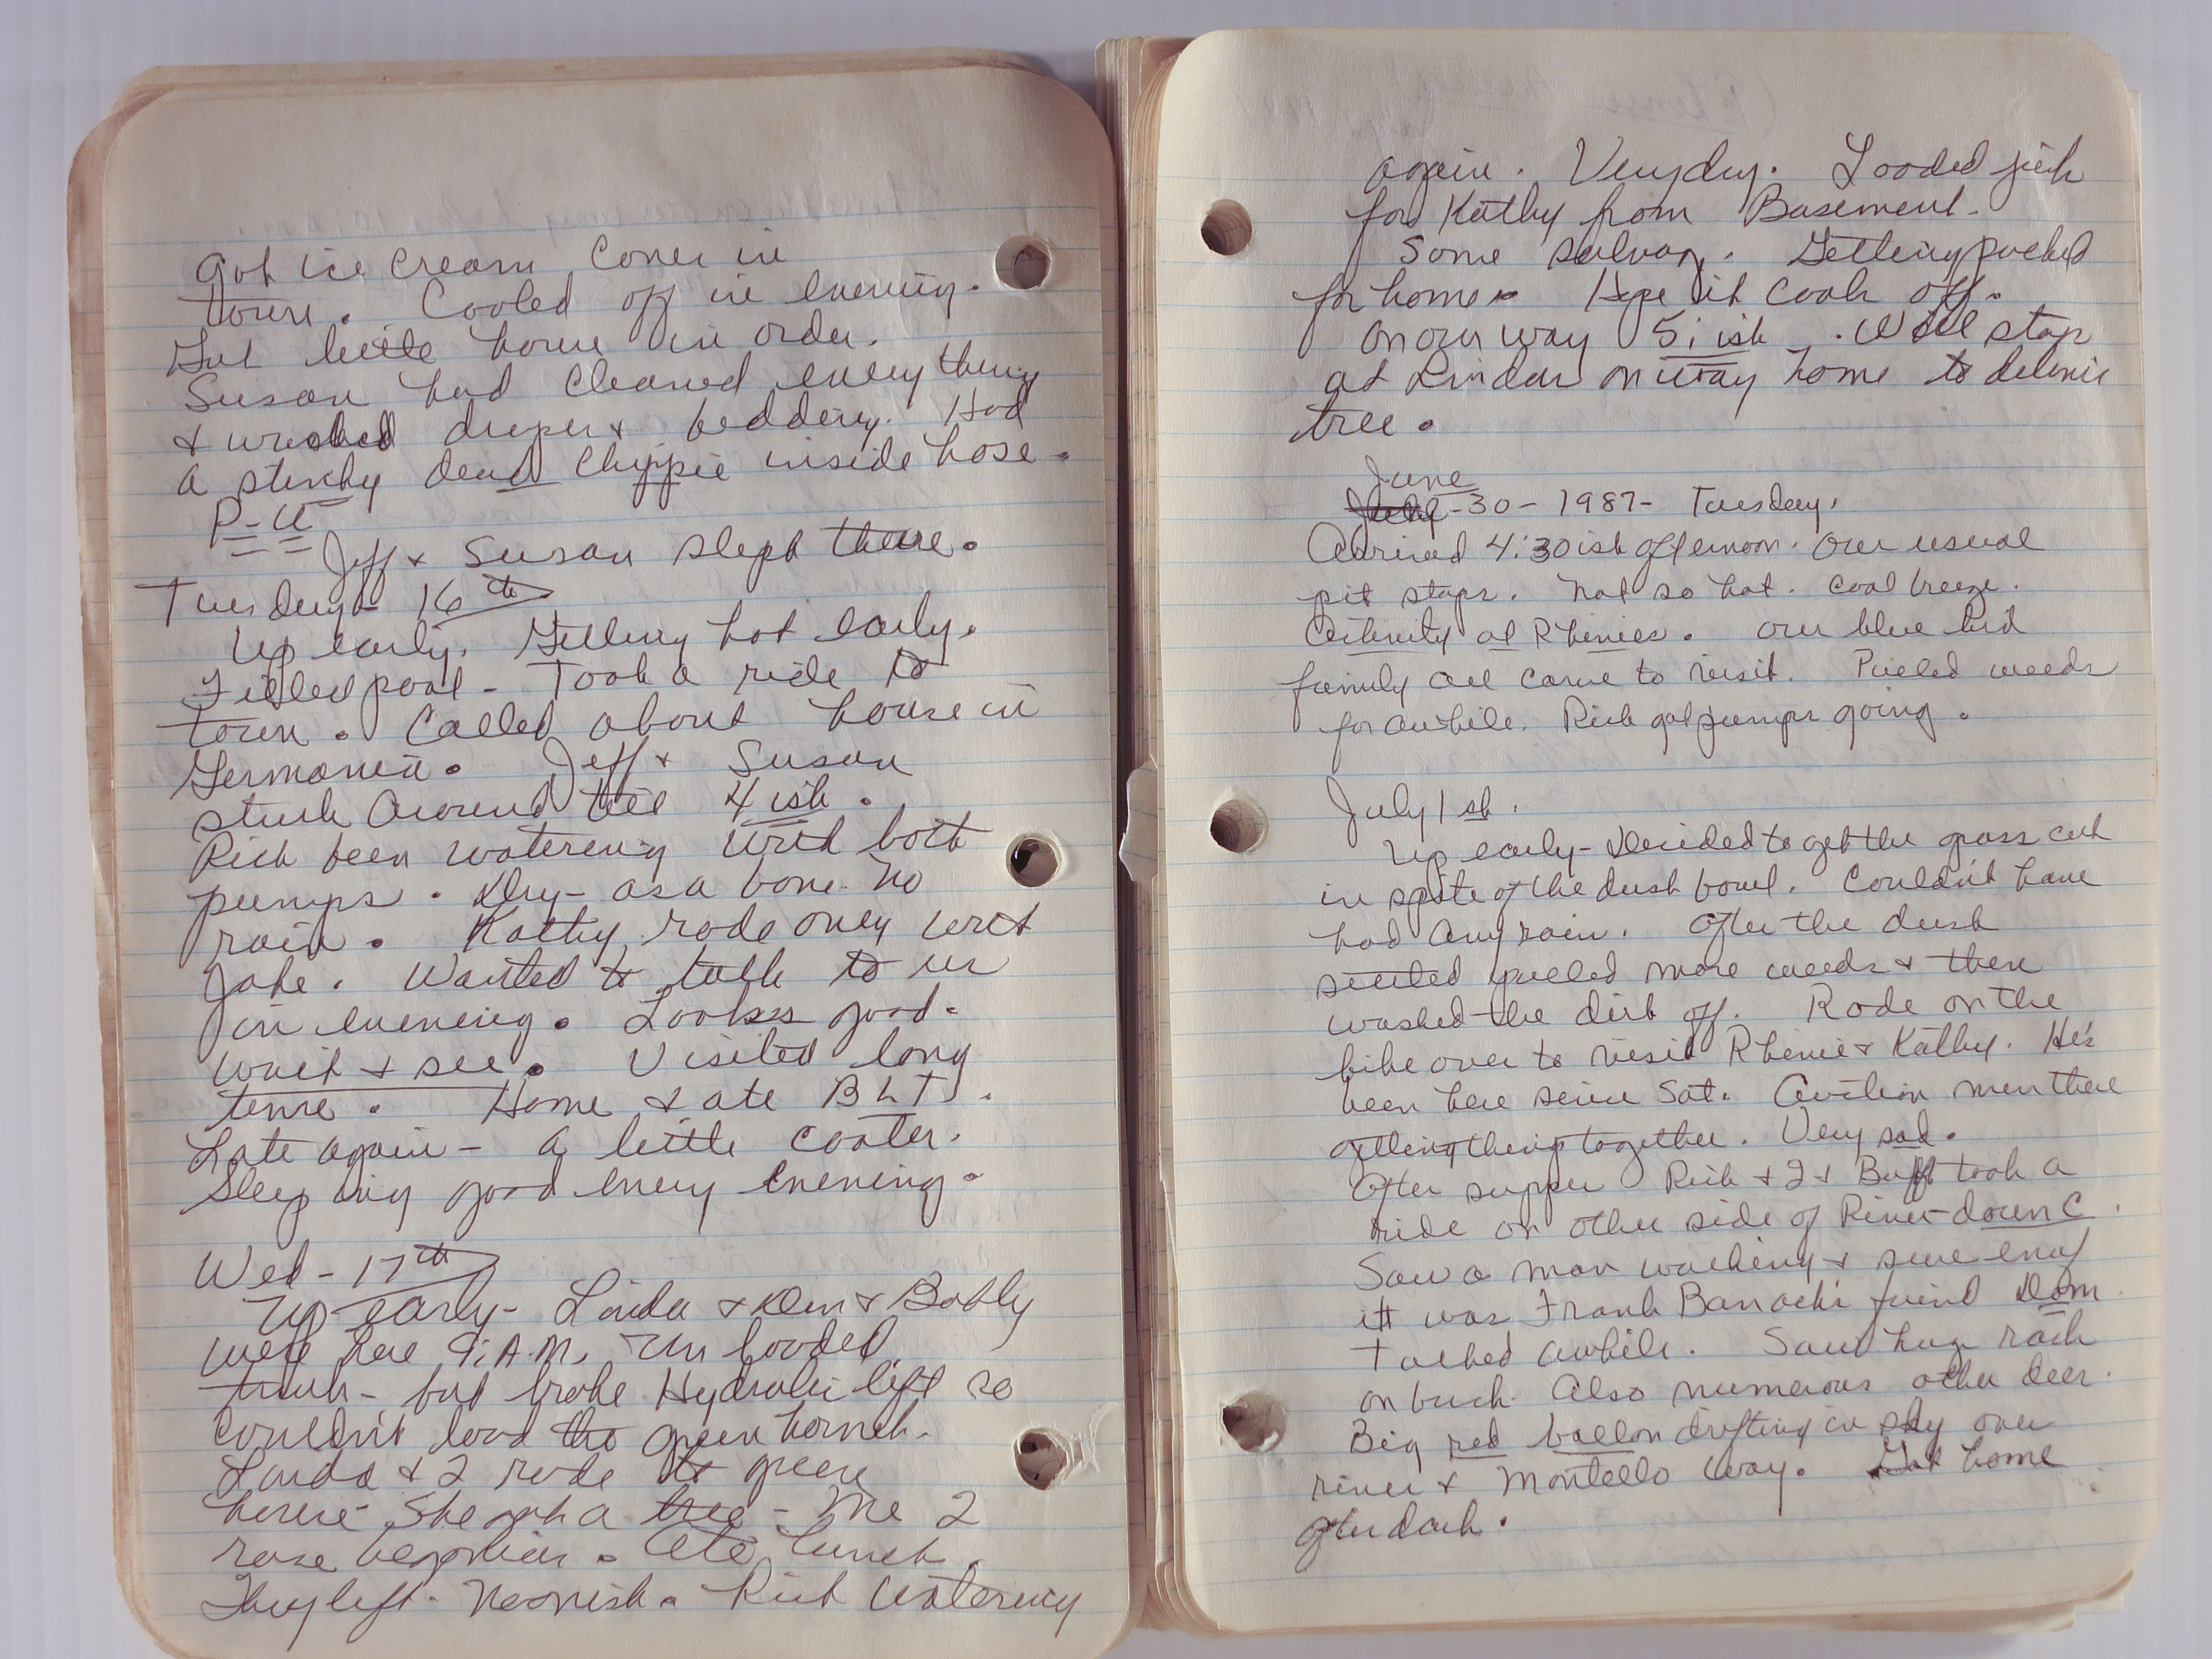 Got ice cream cones in
town. Cooled off in evening.
Got little house in order.
Susan had cleaned everything
& washed drapes & bedding. Had
a stinky dead Chippie inside hose.
P-U
Jeff & Susan slept there.
Tuesday - 16th
Up early. Getting hot early.
Filled pool - Took a ride to
town. Called about house in
Germania. Jeff & Susan
stuck around till 4 ish.
Rich been watering with both
pumps. Dry - as a bone. No
rain. Kathy rode over with
Jake. Wanted to talk to us
in evening. Looks good.
wait & see. Visited long
time. Home & ate BLT.
Late again - a little cooler.
Sleeping good every evening.
Wed - 17th
Up early - Linda & Den & Bobby
were here 9; A.M. Un loaded
truck - but broke Hydralic lift so
couldn't load the green hornet.
Linda & I rode to green
house - She got a tree - Me 2
rose begonias. Ate lunch.
They left - Noonish. Rich watering
again. Very dry. Loaded
for Kathy from Basement.
Some. Getting packed
for home. Hope it cools off.
On our way 5; ish. Will stop
at Lindas on way home to deliver
tree.
June
July -30-1987- Tuesday.
Arrived 4:30 ish afternoon. Our usual
pit stops. Not so hot. Cool breeze.
at Rhinies. Our blue bird
family all came to visit. Pulled weeds
for awhile. Rich got pumps going.
July 1 st.
Up early - Decided to get the grass cut
in spite of the dust bowl. Couldn't have
had any rain. After the dust
settled pulled more weeds & then
washed the dirt off. Rode on the
bike over to visit Rhinie & Kathy. He's
been here since Sat. Auction men there
getting things together. Very sad.
After supper Rich & I & Buff took a
ride on other side of River - down C.
Saw a man walking & sure enuf
it was Frank friend Dom.
Talked awhile. Saw huge rack
on buck. Also numerous other deer.
Big red ballon drifting in sky over
river & Montello way. Got home
after dark.